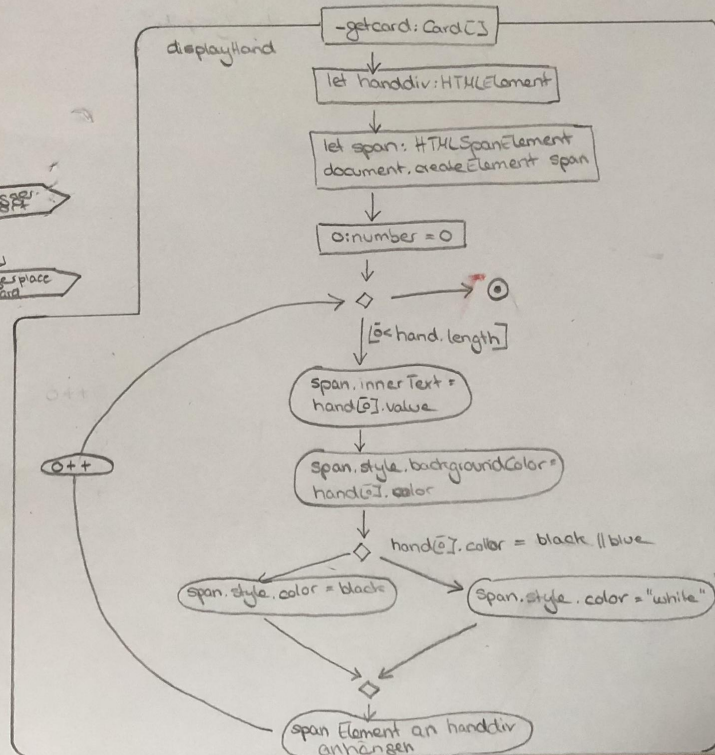 -getcard: Card[]
displayHand
let handdiv: HTMLElement
let span: HTMLSpanElement
document.createElement span
o:number = 0
[o<hand.length]
span.innerText =
hand[o].value
o++
span.style.backgroundColor=
hand[o].color
hand[o].collor = black || blue
span.style.color = black
span.style.color = "white"
span Element an handdiv
anhängen